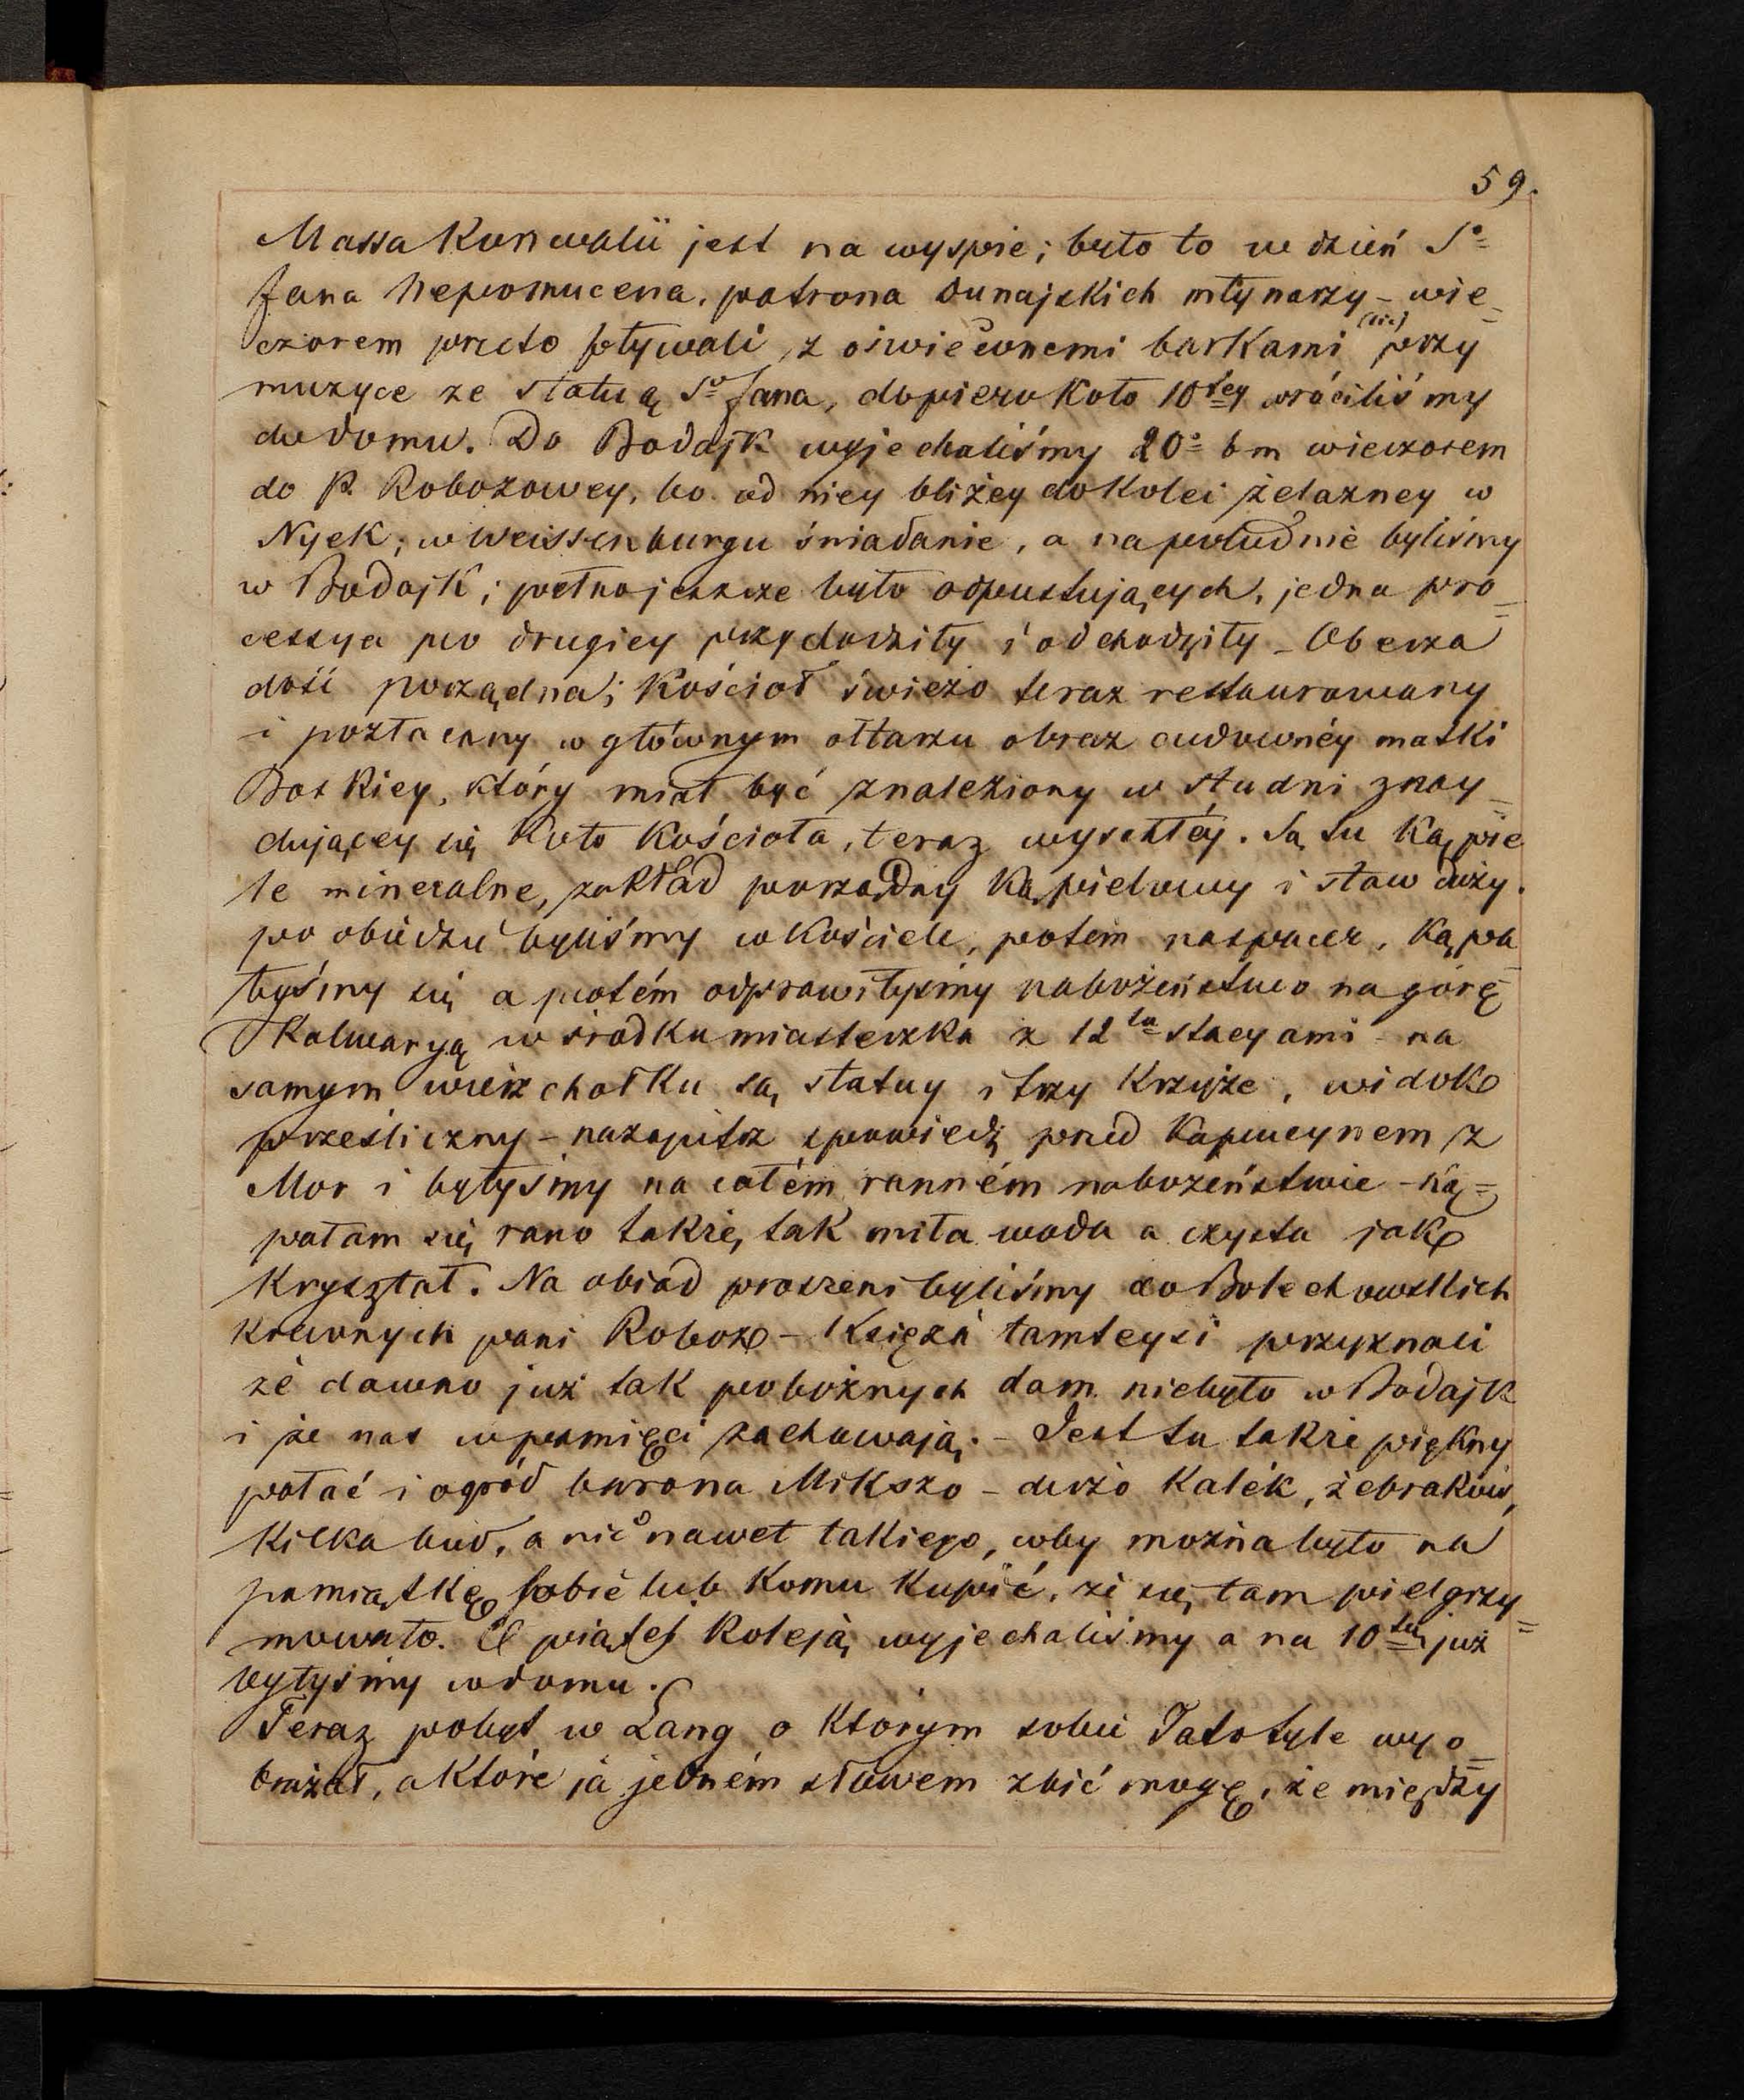 59.
Massa Konwalii jest na wyspie; było to w dzień So
Jana Nepomucena, patrona dunajskich młynarzy - wie=
czorem przeto pływali z oświéconemi barkami (sic) przy
muzyce ze statuą So Jana, dopiero koło 10tey wróciliśmy
do domu. Do Bodajk wyjechaliśmy 20o bm wieczorem
do P. Robozowey, bo od niey bliżey do kolei żelazney w
Nyek; w Weissenburgu śniadanie, a na południe byliśmy
w Bodajk; pełno jeszcze było odpustujących, jedna pro=
cessya po drugiey przychodziły i odchodziły - Oberza
dość porządna; Kościoł świeżo teraz restaurowany
i pozłacany w głównym ołtarzu obraz cudownéy matki
Boskiey, który miał być znaleziony w studni znay=
dującey się koło kościoła, teraz wyschłéy. Są tu kąpie
le mineralne, zakład porządny kąpielowy i staw duży.
po obiedzie byliśmy w kościele, potem na spacer, kąpa=
łyśmy się a potém odprawiłyśmy nabożeństwo na górę
Kalwaryą w środku miasteczka z 12tu stacyami - na
samym wierzchołku są statuy i trzy krzyże, widok
prześliczny - nazajutrz spowiedź przed Kapucynem z
Mor i byłyśmy na całém ranném nabożeństwie - ką=
pałam się rano także, tak miła woda a czysta jak
kryształ. Na obiad proszeni byliśmy do Bolechowskich
krewnych pani Roboz - Księża tamteysi przyznali
że dawno już tak pobożnych dam niebyło w Bodajk
i że nas w pamięci zachowają. - Jest tu także piękny
pałac i ogród barona Mikszo - dużo kalék, żebraków,
kilka bud, a nic nawet takiego, coby można było na
pamiątkę sobie lub komu kupić, że się tam pielgrzy=
mowało. O piątej koleją wyjechaliśmy a na 10tą już
byłyśmy w domu.
Teraz pobyt w Lang o którym sobie Tato tyle wyo=
brażał, a które ja jedném słowem zbić mogę, że między